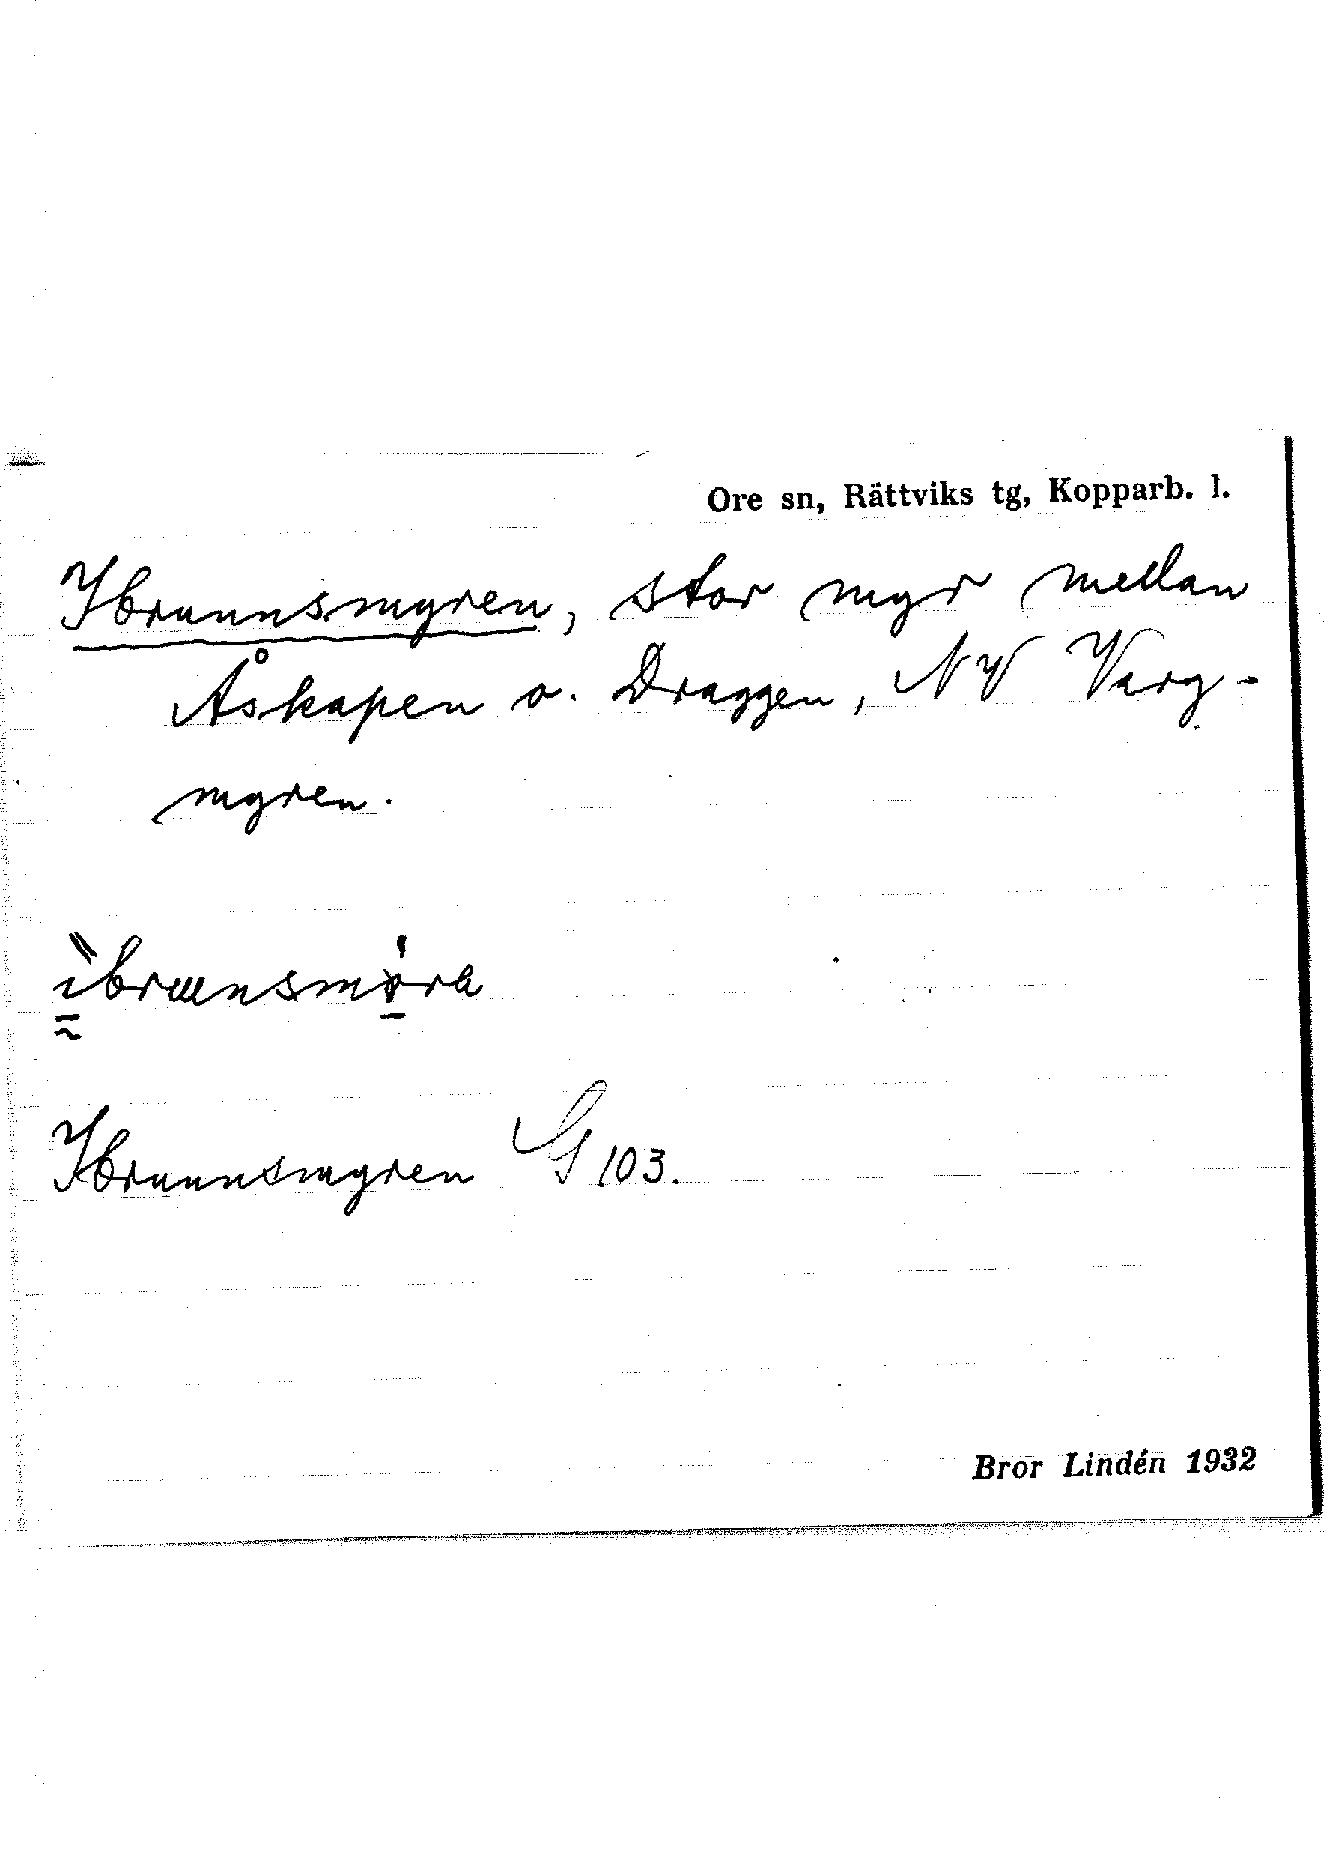 Ore sn, Rättviks tg, Kopparb. l.
Ibrunnsmyren, stor myr mellan
Åskapen o. Draggen, NV Varg-
myren.
Ibrunnsmyren G 103.
Bror Lindén 1932